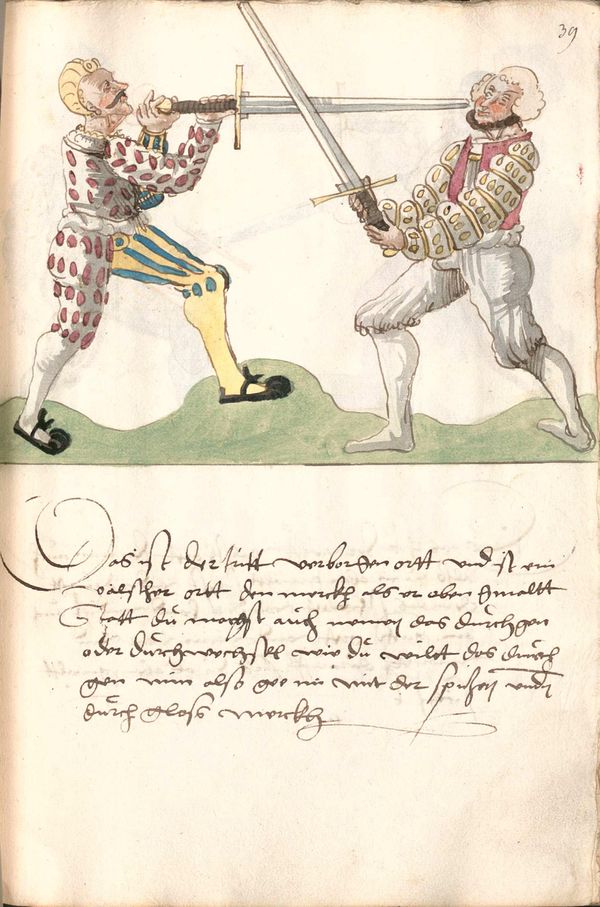 39
Das ist der dritt verborgen ortt und ist ein
valscher ortt den merckh als er oben gmaltt
Statt du magst auch nemen das durchgen
oder durchwechsel wie du wilt das durch
gen nim also gee im mit der spitzen unden
durch gloss merckh